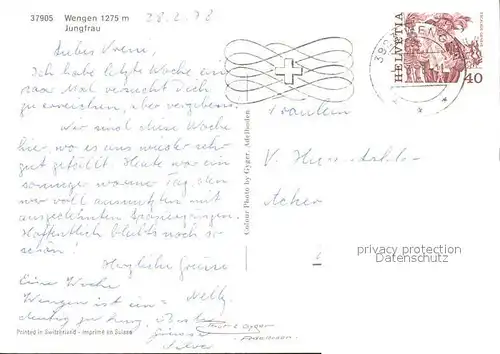 37905 Wengen 1275 m
Jungfrau
28.2.78
Liebes Vreni,
Ich habe letzte Woche ein
paar Mal versucht Dich
zu erreichen, aber vergebens.
Wir sind diese Woche
hier, wo es uns wieder sehr
gut gefällt. Heute war ein
sonniger warmer Tag, den
wir voll ausnützten mit
ausgedehnten Spaziergängen.
Hoffentlich bleibts noch so
schön!
Herzliche Grüsse
Nelly
Eine Woche
Wengen ist ein-
deutig zu kurz. Beste
Grüsse
Printed in Switzerland - Imprimé en Suisse
Colour Photo by Gyger, Adelboden
Gyger
Adelboden
HELVETIA
40
WENGEN
Fräulein
V.
Acher
privacy protection
Datenschutz